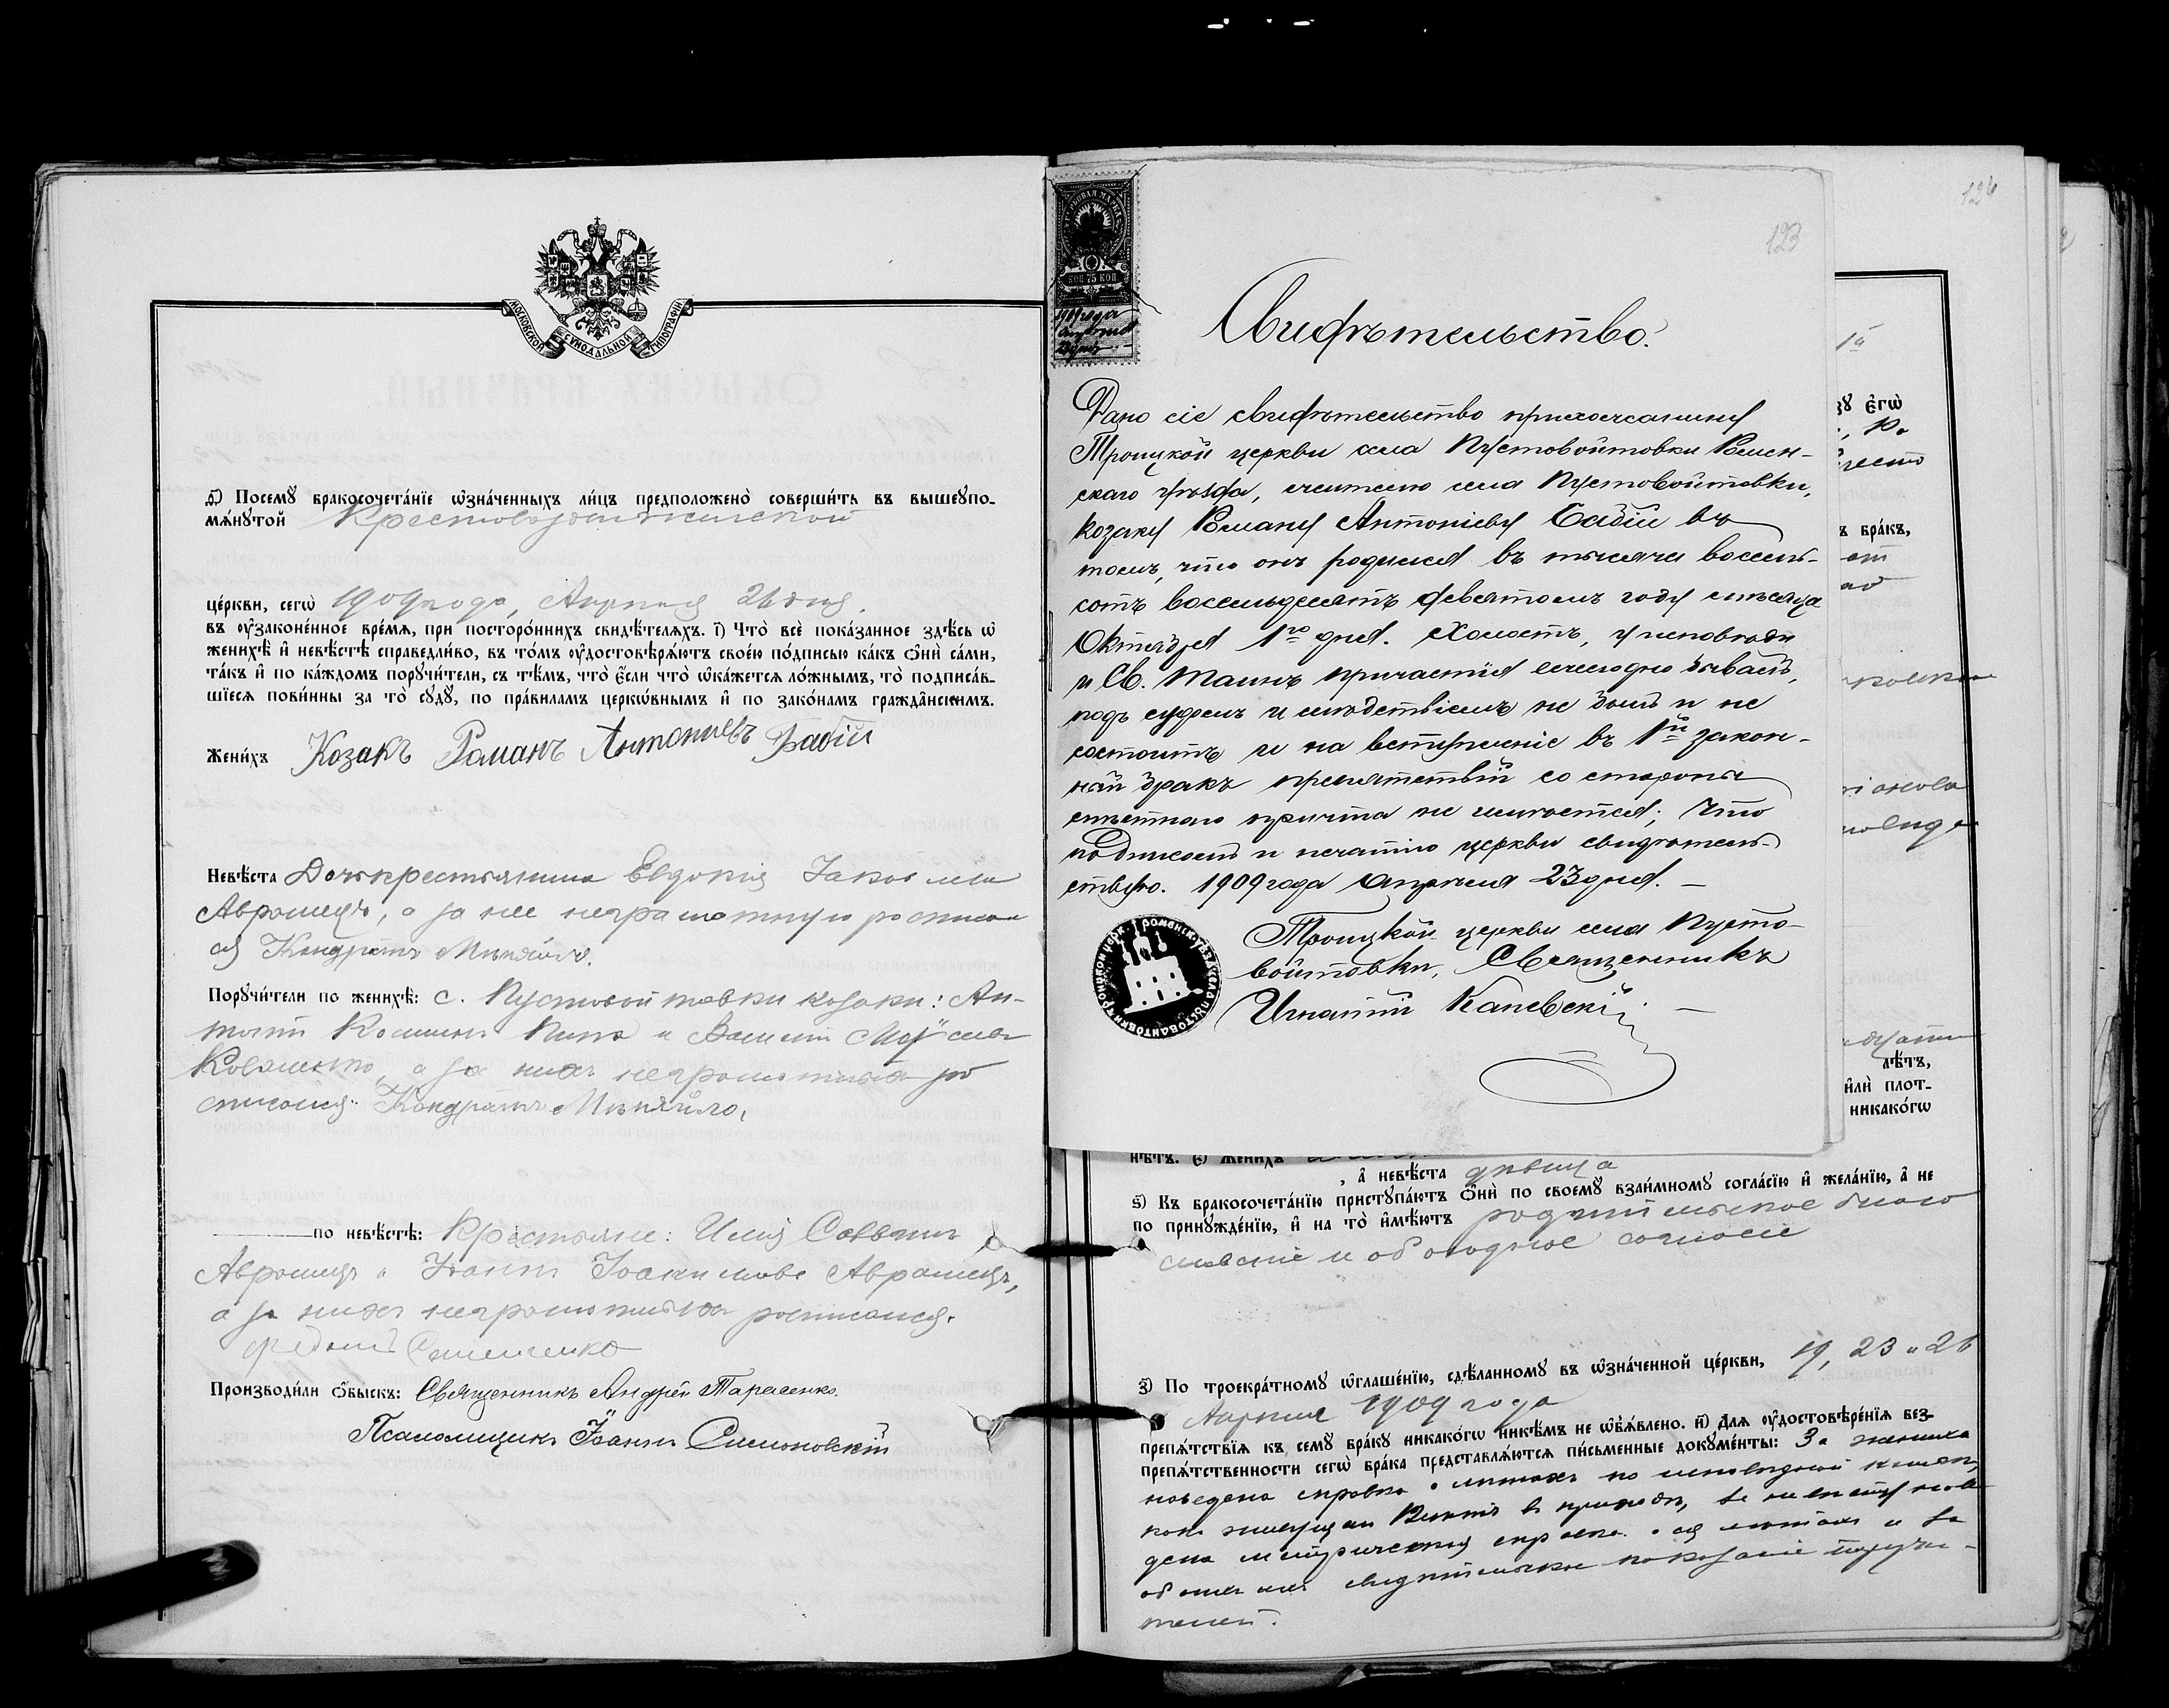 МОСКОВСКОЙ СѴНОДАЛЬНОЙ ТИПОГРАФІИ
д҃) Посемꙋ бракосочета́нїе ѡ҆зна́ченныхъ ли́цъ предположено̀ соверши́ть въ вышеꙋпо-
мѧ́нꙋтой Крестовоздвиженской
це́ркви, сегѡ̀ 1909 года, Апреля 26 дня.
въ ᲂу҆законе́нное вре́мѧ, при посторо́ннихъ свидѣ́телѧхъ. і҃) Что̀ всѐ пока́занное здѣ́сь ѡ҆
женихѣ̀ и҆ невѣ́стѣ справедли́во, въ то́мъ ᲂу҆достовѣрѧ́ютъ свое́ю по́дписью ка́къ ѻ҆нѝ са́ми,
та́къ и҆ по ка́ждомъ порꙋчи́тели, съ тѣ́мъ, что̀ є҆́сли что̀ ѡ҆ка́жетсѧ ло́жнымъ, то̀ подписа́в-
шїесѧ пови́нны за то̀ сꙋдꙋ̀, по пра́виламъ церко́внымъ и҆ по зако́намъ гражда́нскимъ.
Жени́хъ Козакъ Романъ Антониевъ Бабій
Невѣ́ста Дочь крестьянина Евдокія Іаковлева
Аврамецъ, а за нее неграмотную росписал-
ся Кондратъ Миняйло.
Порꙋчи́тели по женихѣ̀: с. Пустовойтовки козаки: Ан-
тоній и Василій
Коваленко, а за нихъ неграмотныхъ ро
списался Кондратъ Миняйло.
по невѣ́стѣ: Крестьяне: Илія Саввинъ
Аврамецъ и Іоаннъ Іоакимовъ Аврамецъ,
а за нихъ неграмотныхъ росписался
Федоръ Семененко
Производи́ли ѻ҆́быскъ: Священникъ Андрей Тарасенко.
Псаломщикъ Іоаннъ Симоновскій
124
123
ГЕРБОВАЯ МАРКА
75 КОП
1909 года
апреля
23 дня
Свидѣтельство.
Дано сіе свидѣтельство прихожанину
Троицкой церкви села Пустовойтовки Ромен-
скаго уѣзда, жителю села Пустовойтовки,
козаку Роману Антоніеву Бабій въ
томъ, что онъ родился въ тысяча восемь-
сотъ восемьдесятъ девятомъ году мѣсяца
Октября 1го дня. Холостъ, у исповѣди
и Св. Таинъ причастія ежегодно бываетъ,
подъ судомъ и слѣдствіемъ не былъ и не
состоитъ и на вступленіе въ 1й закон-
ный бракъ препятствій со стороны
мѣстнаго причта не имѣется; что
подписомъ и печатію церкви свидѣтель-
ствую. 1909 года Апрѣля 23 дня.
Троицкой церкви села Пусто-
войтовки, Священникъ
Игнатій Каневскій
1й
є҆гѡ̀
ъ бра́къ,
лѣ́тъ,
и҆лѝ плот-
никако́гѡ
нѣ́тъ. є҃) Жени́хъ
, а҆ невѣ́ста дѣвица
ѕ҃) Къ бракосочета́нїю пристꙋпа́ютъ ѻ҆нѝ по своемꙋ̀ взаи́мномꙋ согла́сїю и҆ жела́нїю, а҆ не
по принꙋжде́нїю, и҆ на то̀ и҆мѣ́ютъ родительское благо
словеніе и обоюдное согласіе
з҃) По троекра́тномꙋ ѡ҆глаше́нїю, сдѣ́ланномꙋ въ ѡ҆зна́ченной це́ркви, 19, 23 и 26
Апреля 1909 года
препѧ́тствїѧ къ семꙋ̀ бра́кꙋ никако́гѡ никѣ́мъ не ѡ҆б̾ѧ́влено. и҃) Длѧ ᲂу҆достовѣре́нїѧ без-
препѧ́тственности сегѡ̀ бра́ка представлѧ́ютсѧ пи́сьменные докꙋме́нты: За жениха
наведена справка о лѣтахъ по исповедной книге,
дена метрическая справка о ея лѣтахъ и за
показаніе поручи-
телей.